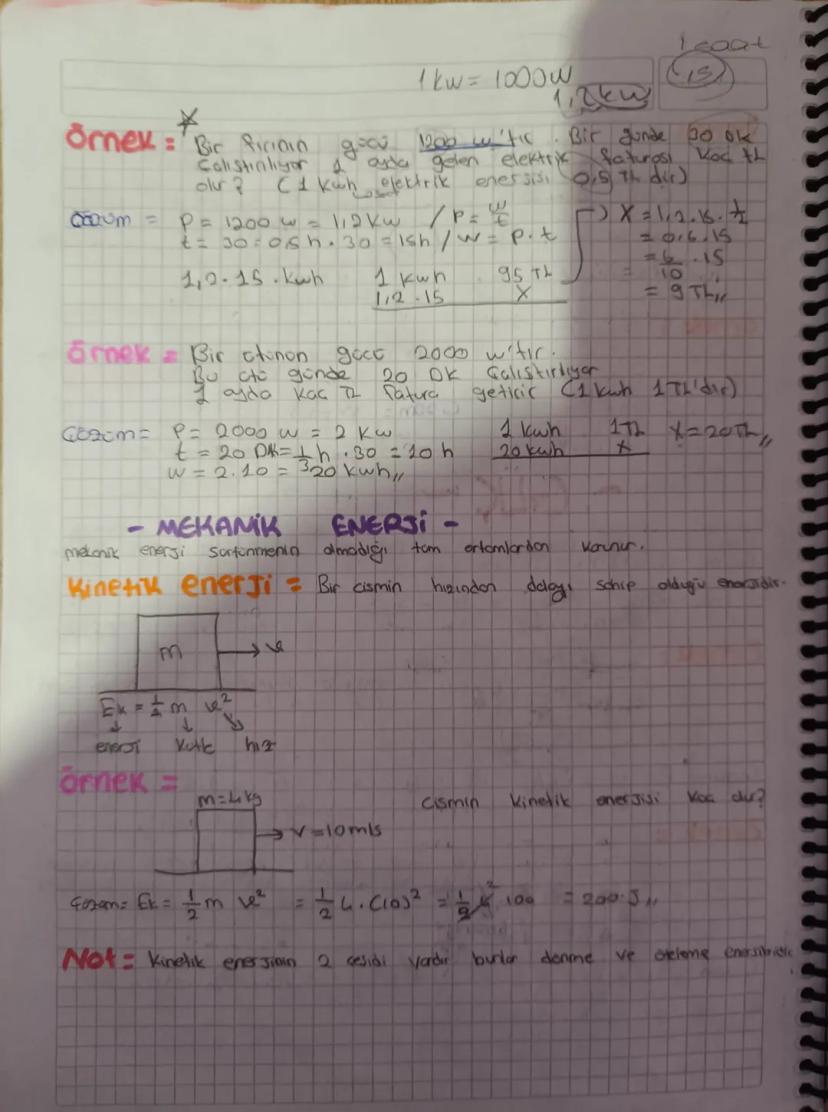 1 saat
1 kw = 1000 w
15
1,2 kw
Örnek = Bir fırının gücü 1200 w'tır. Bir günde 30 DK
Çalıştırılıyor 1 ayda gelen elektrik faturası kaç TL
olur? (1 kwh elektrik enerjisi 0,5 TL dir)
Çözüm = P = 1200 w = 1,2 kw / P = w/t
t = 30 = 0,5 h . 30 = 15h / w = P . t
1,2 . 15 . kwh
1 kwh 95 TL
1,2 . 15 X
X = 1,2 . 15 . 1/2
= 0,6 . 15
= 6/10 . 15
= 9 TL,,
Örnek = Bir ütünün gücü 2000 w'tır.
Bu ütü günde 20 DK Çalıştırılıyor
1 ayda kaç TL fatura getirir (1 kwh 1 TL'dir)
Çözüm = P = 2000 w = 2 kw 1 kwh 1 TL X = 20 TL,,
t = 20 DK = 1/3 h . 30 = 10 h 20 kwh X
w = 2 . 10 = 20 kwh,,
- MEKANİK ENERJİ -
mekanik enerji sürtünmenin olmadığı tüm ortamlardan korunur.
Kinetik enerji = Bir cismin hızından dolayı sahip olduğu enerjidir.
m v
Ek = 1/2 m v²
enerji kütle hız
Örnek =
m = 4 kg cismin kinetik enerjisi kaç dır?
v = 10 m/s
Çözüm = Ek = 1/2 m v² = 1/2 4 . (10)² = 1/2 4 2 100 = 200 J,,
Not = Kinetik enerjinin 2 çeşidi vardır bunlar dönme ve öteleme enerjileridir